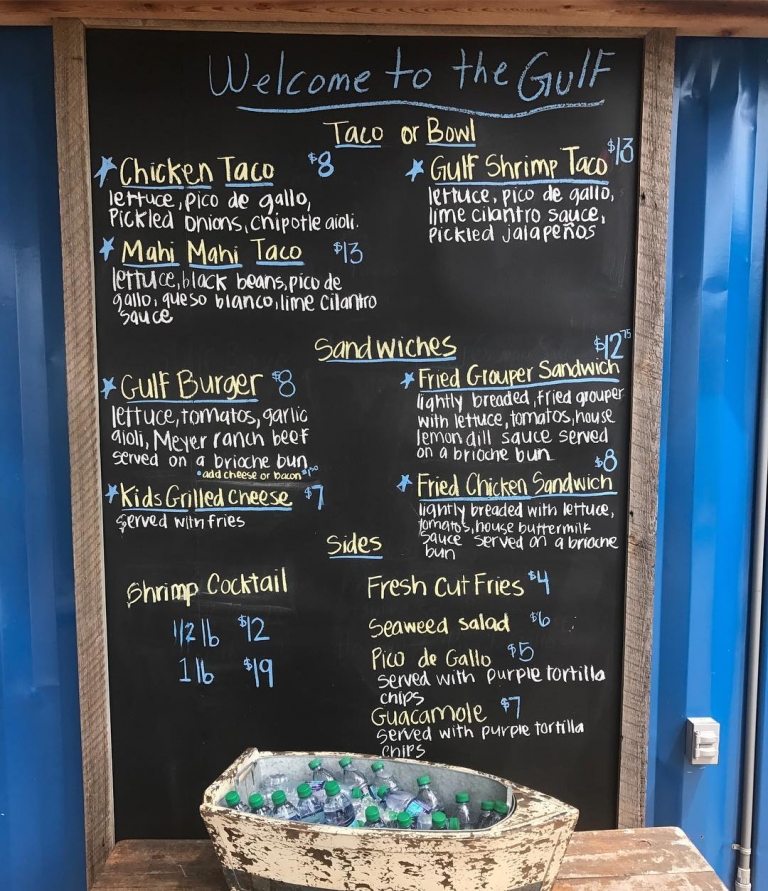 Welcome to the Gulf
Taco or Bowl
Chicken Taco $8
lettuce, pico de gallo,
Pickled onions, chipotle aioli.
Mahi Mahi Taco $13
lettuce, black beans, pico de
gallo, queso blanco, lime cilantro
sauce
Gulf Shrimp Taco $13
lettuce, pico de gallo,
lime cilantro sauce,
pickled jalapeños
Sandwiches
Gulf Burger $8
lettuce, tomatos, garlic
aioli, Meyer ranch beef
served on a brioche bun
*add cheese or bacon
Kids Grilled Cheese $7
served with fries
$12.75
Fried Grouper Sandwich
lightly breaded, fried grouper
with lettuce, tomatos, house
lemon dill sauce served
on a brioche bun
$8
Fried Chicken Sandwich
lightly breaded with lettuce,
tomatos, house buttermilk
sauce served on a brioche
bun
Sides
Shrimp Cocktail
1/2 lb $12
1 lb $19
Fresh Cut Fries $4
Seaweed salad $6
Pico de Gallo $5
served with purple tortilla
chips
Guacamole $7
served with purple tortilla
chips